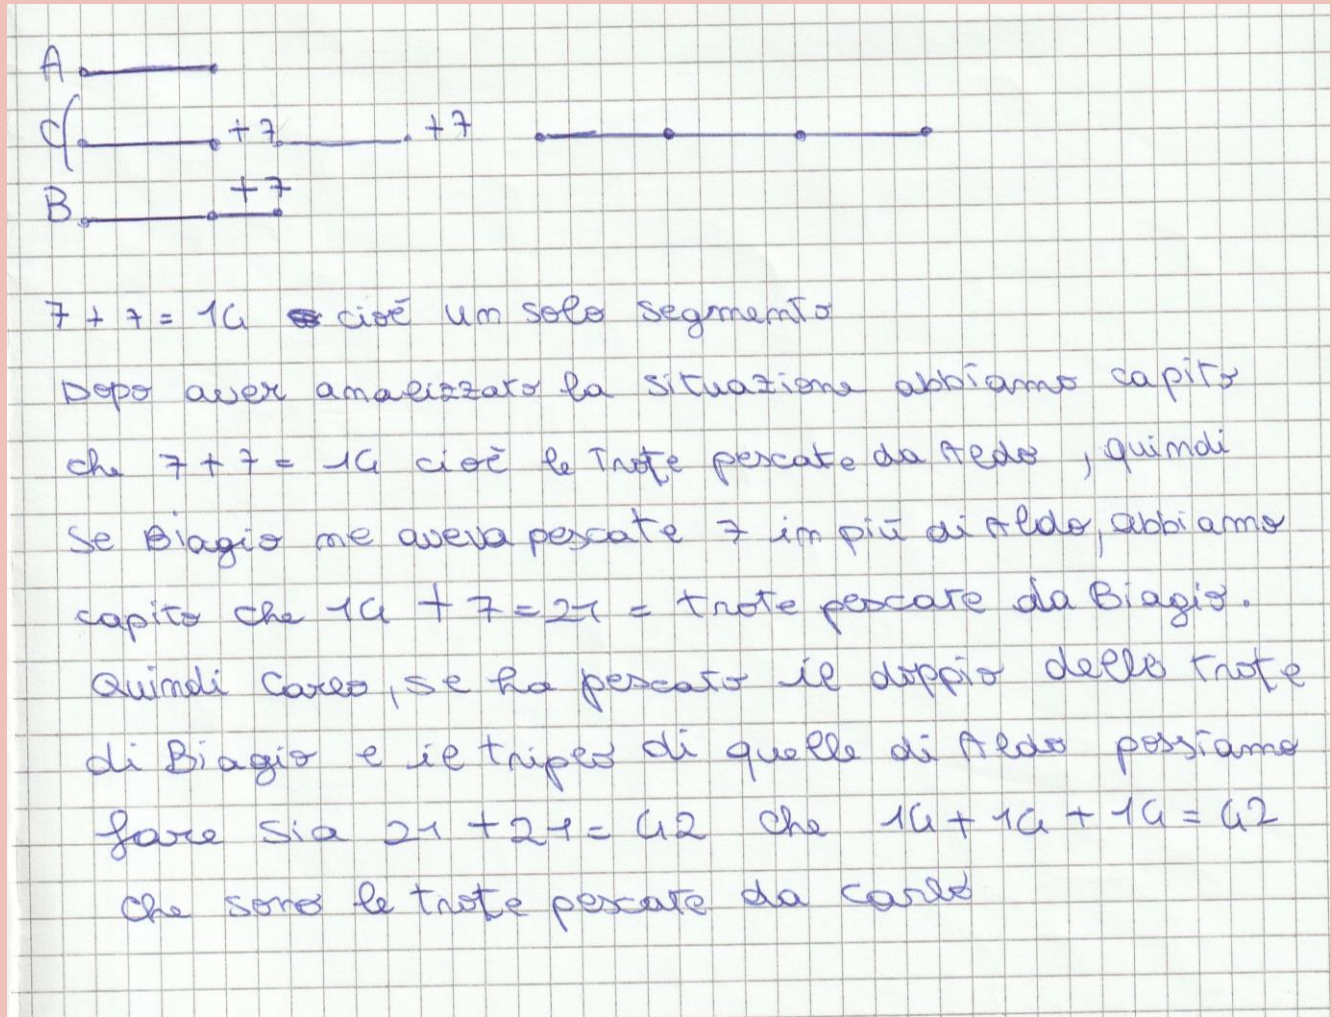 A
C +7 +7
B +7
7 + 7 = 14 cioè un solo segmento
Dopo aver analizzato la situazione abbiamo capito
che 7 + 7 = 14 cioè le trote pescate da Aldo, quindi
se Biagio ne aveva pescate 7 in più di Aldo, abbiamo
capito che 14 + 7 = 21 = trote pescate da Biagio.
Quindi Carlo, se ha pescato il doppio delle trote
di Biagio e il triplo di quelle di Aldo possiamo
fare sia 21 + 21 = 42 che 14 + 14 + 14 = 42
che sono le trote pescate da Carlo